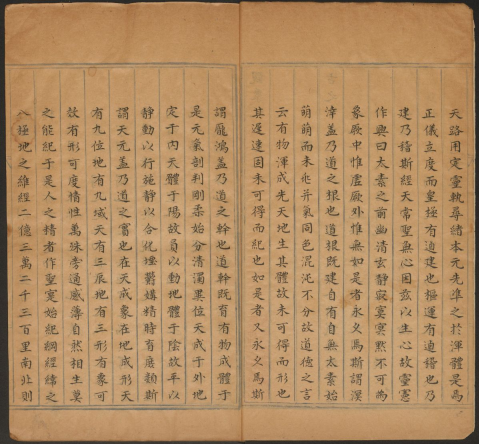 天路用定靈軌尋緒本元先準之於渾體是爲
正儀立度而皇極有逌建也樞運有逌稽也乃
建乃稽斯經天常聖無心因茲以生心故靈憲
作興曰太素之前幽清玄靜寂寞冥默不可爲
象厥中惟虛厥外惟無如是者永久焉斯謂溟
涬盖乃道之根也道根既建自有自無太素始
萌萌而未兆并氣同色混沌不分故道德之言
云有物渾成先天地生其體故未可得而形也
其遲速固未可得而紀也如是者又永久焉斯
謂龐鴻盖乃道之幹也道幹既育有物成體于
是元氣剖判剛柔始分清濁異位天成于外地
定于內天體于陽故員以動地體于陰故平以
靜動以行施靜以合化堙鬱媾精時育庶類斯
謂天元盖乃道之實也在天成象在地成形天
有九位地有九域天有三辰地有三形有象可
效有形可度情性萬殊旁通感薄自然相生莫
之能紀于是人之精者作聖實始紀綱經緯之
八極地之維經二億三萬二千三百里南北則